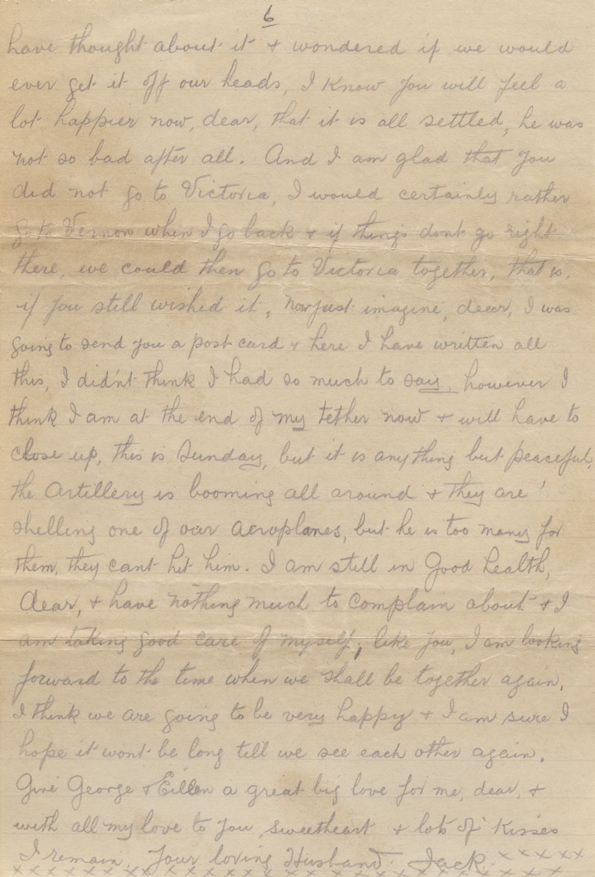 6
have thought about it + wondered if we would
ever get it off our heads, I know you will feel a
lot happier now, dear, that it is all settled, he was
not so bad after all. And I am glad that you
did not go to Victoria, I would certainly rather
go to Vernon when I go back + if things dont go right
there, we could then go to Victoria together, that is,
if you still wished it, now just imagine, dear, I was
going to send you a post card + here I have written all
this, I did'nt think I had so much to say, however I
think I am at the end of my tether now + will have to
close up, this is Sunday, but it is anything but peaceful,
the Artillery is booming all around + they are
shelling one of our aeroplanes, but he is too many for
them, they cant hit him. I am still in Good health,
dear, + have nothing much to complain about + I
am taking good care of myself, like you, I am looking
forward to the time when we shall be together again,
I think we are going to be very happy + I am sure I
hope it wont be long till we see each other again.
Give George + Eillen a great big love for me, dear, +
with all my love to you sweetheart + lots of Kisses
I remain. Your loving Husband. Jack. x x x x x
x x x x x x x x x x x x x x x x x x x x x x x